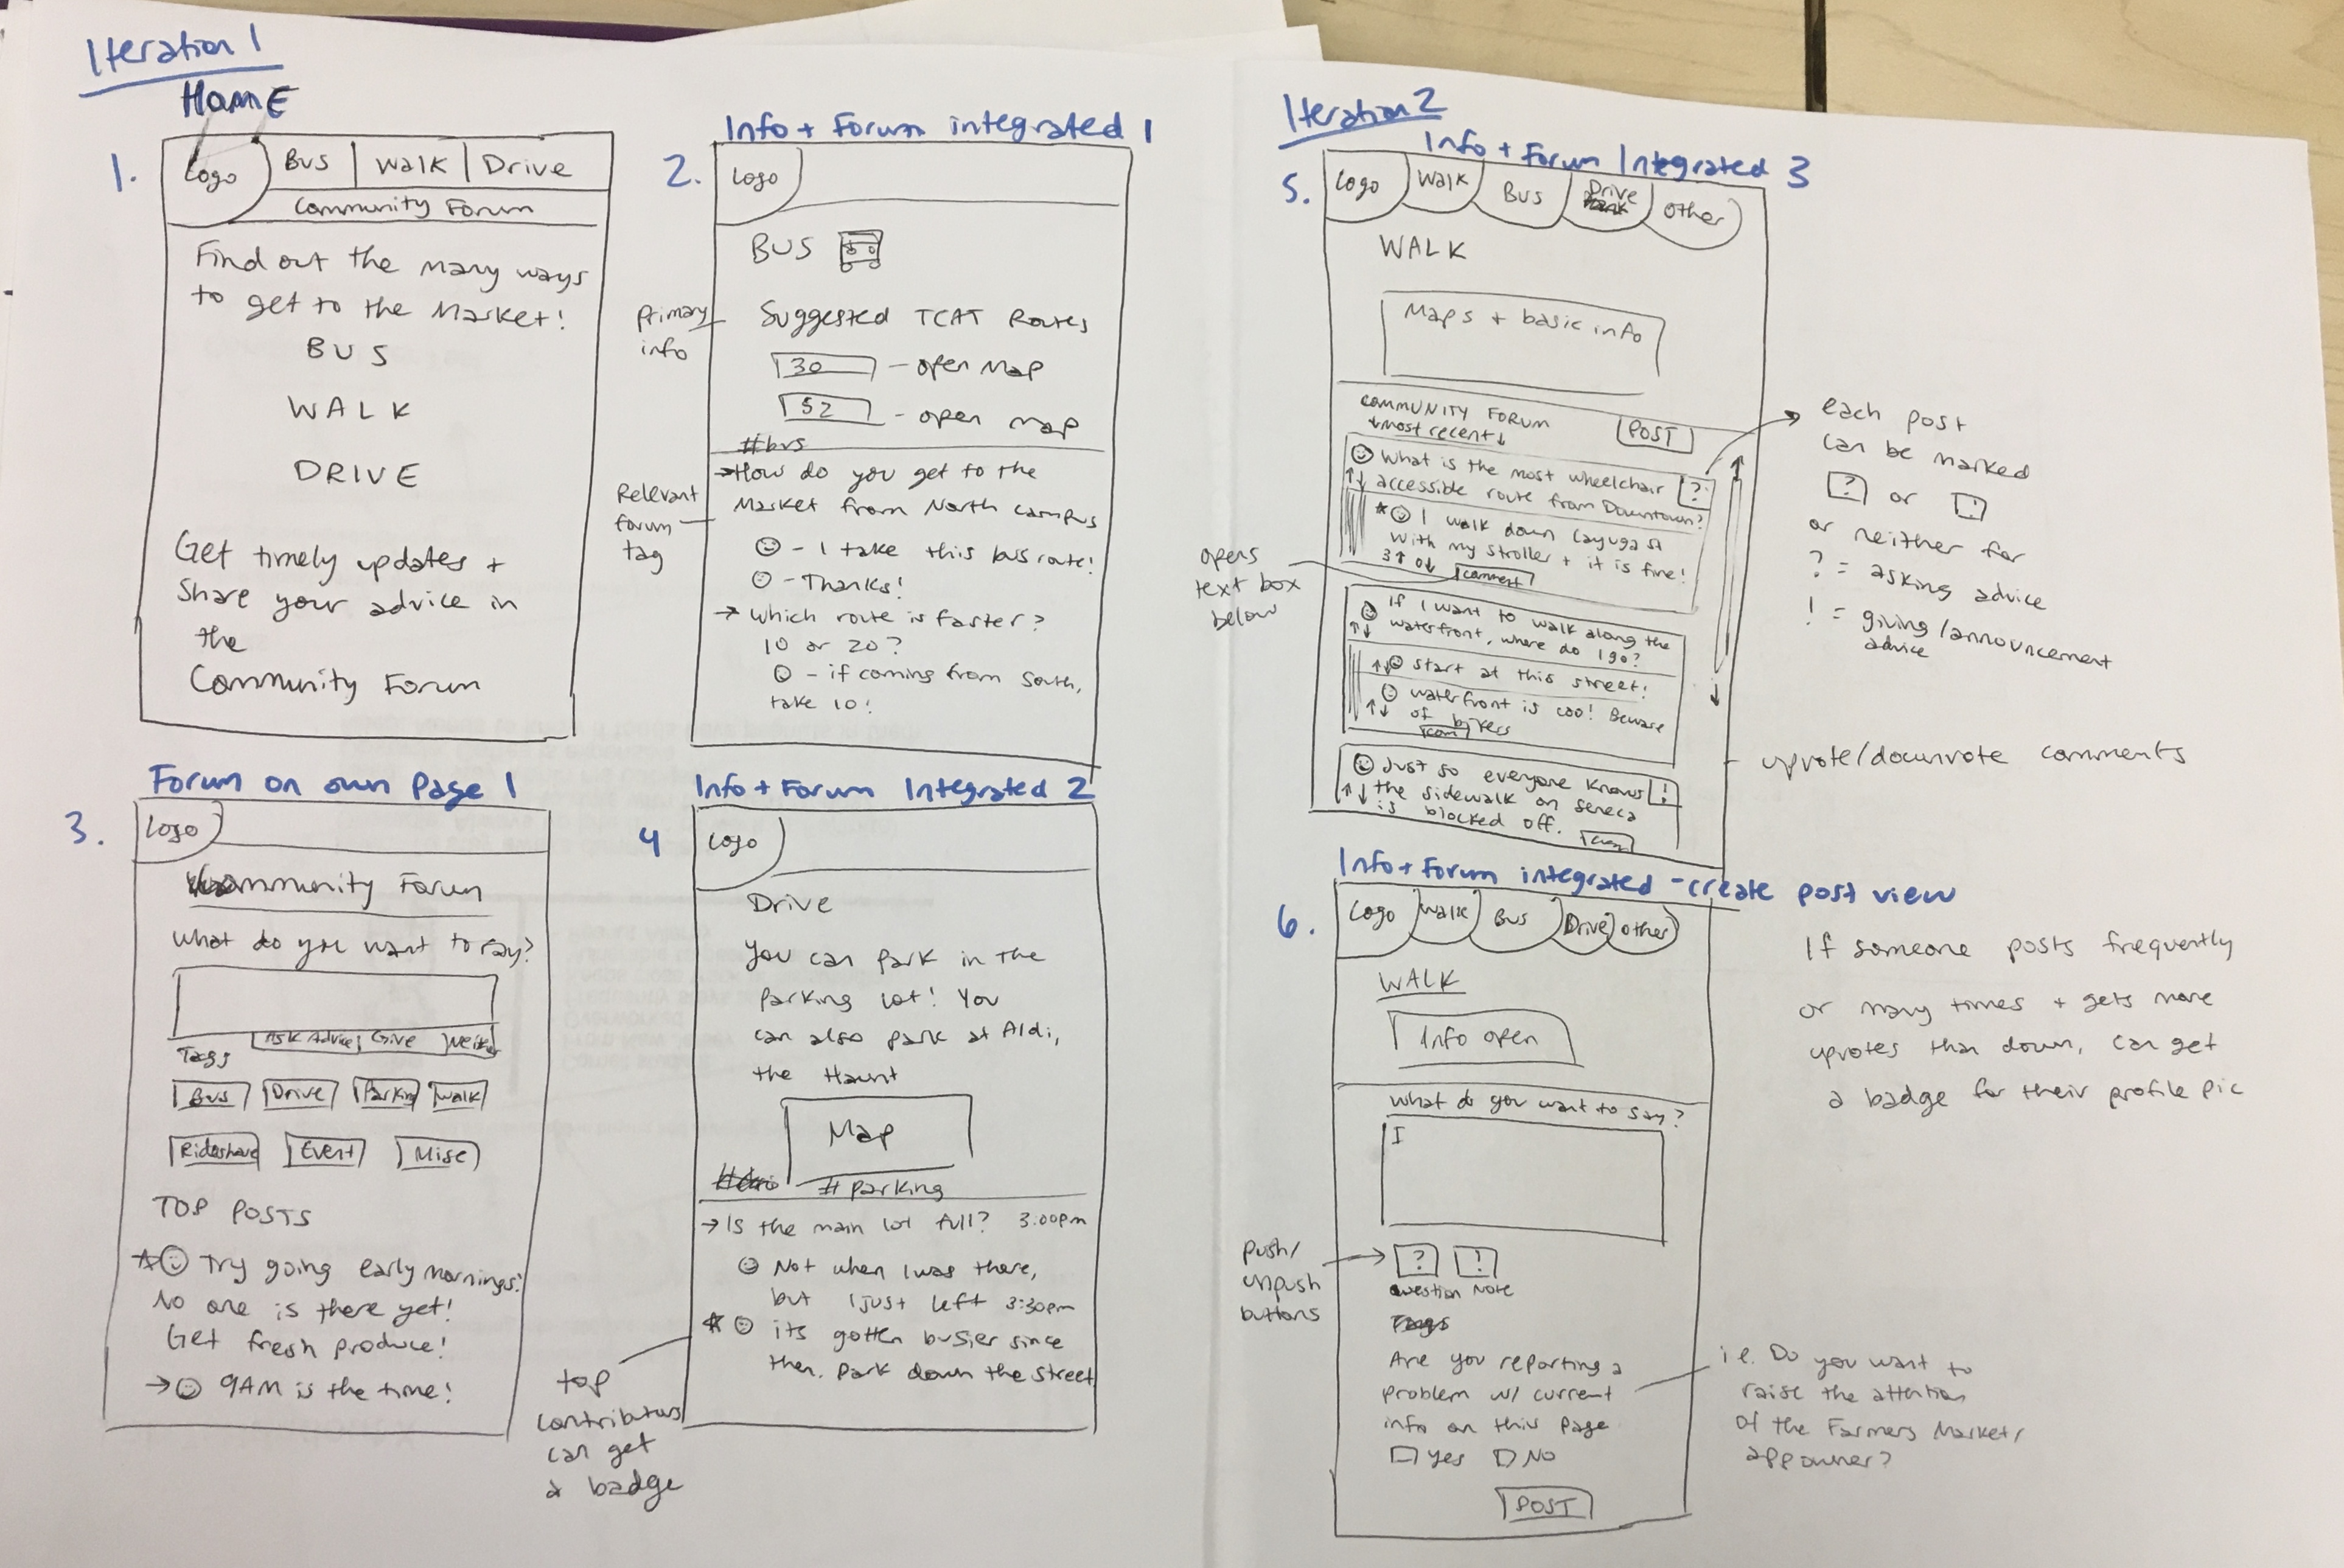 Iteration 1
HOME
1.
Logo
Bus | Walk | Drive
Community Forum
Find out the many ways
to get to the Market!
BUS
WALK
DRIVE
Get timely updates +
Share your advice in
the
Community Forum
Info + Forum integrated 1
2.
Logo
BUS
primary
info
Suggested TCAT Routes
30 - open Map
52 - open map
#bus
Relevant
forum
tag
→How do you get to the
Market from North campus
- I take this bus route!
- Thanks!
→ which route is faster?
10 or 20?
- if coming from South,
take 10!
Forum on own Page 1
3.
Logo
Community Forum
what do you want to say?
Ask Advice Give
Tags
Bus Drive Parking Walk
Rideshare Event Misc
TOP POSTS
Try going early mornings!
No one is there yet!
Get fresh produce!
→ 9AM is the time!
Info + Forum Integrated 2
4
Logo
Drive
You can park in the
parking lot! You
can also park at Aldi,
the Haunt
Map
# parking
→ Is the main lot full? 3:00pm
Not when I was there,
but I just left 3:30pm
its gotten busier since
then. Park down the street
top
contributors
can get
a badge
Iteration 2
Info + Forum Integrated 3
5.
Logo Walk Bus Drive Other
WALK
Maps + basic info
COMMUNITY FORUM
↓most recent↓
POST
What is the most wheelchair ?
↑↓ accessible route from Downtown?
I walk down Cayuga St
with my stroller + it is fine!
3↑ 0↓ comment
opens
text box
below
If I want to walk along the
↑↓ waterfront, where do I go?
↑↓ start at this street!
waterfront is coo! Beware
↑↓ of bikers
com
Just so everyone knows !
↑↓ the sidewalk on seneca
is blocked off.
each post
can be marked
? or !
or neither for
? = asking advice
! = giving/announcement
advice
upvote/downvote comments
Info + Forum integrated - create post view
6.
Logo Walk Bus Drive Other
WALK
Info open
What do you want to say?
I
? !
Question Note
push/
unpush
buttons
Are you reporting a
problem w/ current
info on this page
Yes No
POST
If someone posts frequently
or many times + gets more
upvotes than down, can get
a badge for their profile pic
i.e. Do you want to
raise the attention
of the Farmers Market/
app owner?